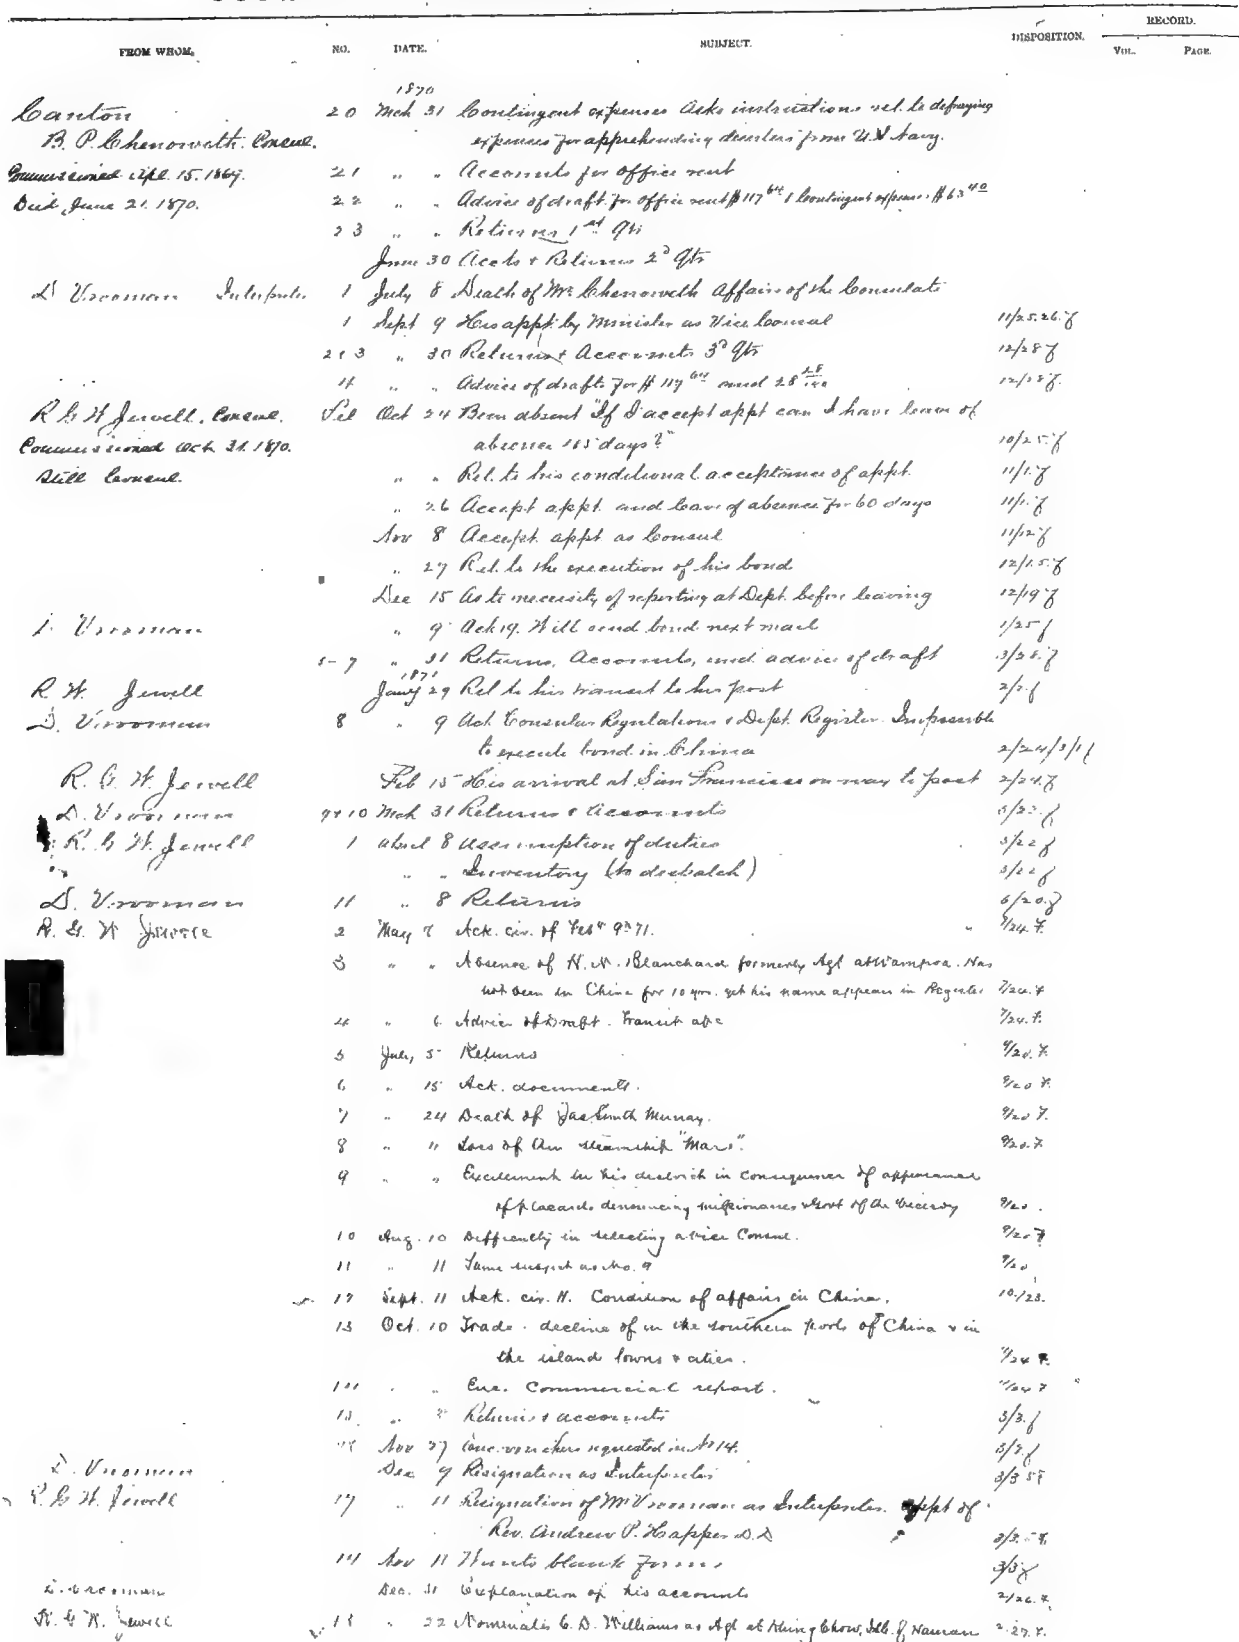 RECORD.
FROM WHOM. NO. DATE. SUBJECT. DISPOSITION. VOL. PAGE.
1870
Canton 20 Mch 31 Contingent expenses Asks instructions rel. to defraying
B. P. Chenoweth. Consul. expenses for apprehending deserters from U.S Navy.
Commissioned Apl. 15. 1869. 21 " " Accounts for office rent
Died, June 21. 1870. 22 " " Advice of draft for office rent $117 64 & Contingent expenses $63 40
23 " " Returns 1st Qtr
June 30 Accts & Returns 2d Qtr
D Vrooman Interpreter 1 July 8 Death of Mr Chenoweth Affairs of the Consulate
1 Sept 9 His appt. by Minister as Vice Consul 11/25.26. f
2 & 3 " 30 Returns & Accounts 3d Qtr 12/28 f
4 " " Advice of drafts for $117 64 and 28 12/28 f.
R G W Jewell. Consul. Tel Oct 24 Been absent "If I accept appt can I have leave of
Commissioned Oct. 31. 1870. absence 165 days?" 10/25. f
Still Consul. " " Rel. to his conditional acceptance of appt. 11/1. f
" 26 Accept appt. and leave of absence for 60 days 11/1. f
Nov 8 Accept. appt as Consul 11/12 f
" 27 Rel. to the execution of his bond 12/1.5. f
Dec 15 As to necessity of reporting at Dept. before leaving 12/19 f
D. Vrooman " 9 Ack 19. Will send bond next mail 1/25 f
5-7 " 31 Returns, Accounts, and advice of draft 3/28. f
1871
R. W. Jewell Jany 29 Rel to his transit to his post 2/2. f
D. Vrooman 8 " 9 Ack Consular Regulations & Dept. Register. Impossible
to execute bond in China 2/24/3/1 f
R. G. W. Jewell Feb 15 His arrival at San Francisco on way to post 2/24. f
D. Vrooman 9 & 10 Mch 31 Returns & Accounts 5/22. f
R. G W. Jewell 1 April 8 Assumption of duties 5/22 f
" " Inventory (to despatch) 5/22 f
D. Vrooman 11 " 8 Returns 6/20. f
R. G. W Jewell 2 May 6 Ack. cir. of Feby 9th 71. 7/24. F.
3 " " Absence of H. N. Blanchard formerly Agt at Wampoa. Has
not been in China for 10 yrs. yet his name appears in Register 7/24. F
4 " 6 Advice of Draft. Transit a/c 7/24. F.
5 July, 5 Returns 9/20. F.
6 " 15 Ack. documents. 9/20 F.
7 " 24 Death of Jas Smith Murray. 9/20 F.
8 " 11 Loss of Am steamship "Mars". 9/20. F
9 " " Excitement in his district in consequence of appearance
of placards denouncing missionaries & Govt of the Viceroy 9/20.
10 Aug. 10 Difficulty in selecting a vice Consul. 9/20 F
11 " 11 Same subject as No. 9 9/20
12 Sept. 11 Ack. cir. H. Condition of affairs in China. 10/23.
13 Oct. 10 Trade - decline of in the southern ports of China & in
the island towns & cities. 11/24 F.
" " Enc. Commercial report. 11/24 F
15. " Returns & accounts 3/3. f
Nov 27 Enc. vouchers requested in No 14. 3/3. f
D. Vrooman Dec 9 Resignation as Interpreter 3/3
R. G. W. Jewell 17 " 11 Resignation of Mr Vrooman as Interpreter. appt of
Rev. Andrew P. Happer D.D 3/3
14 Nov 11 Wants blank forms 3/3 f
D. Vrooman Dec. 31 Explanation of his accounts 2/26. F.
R. G. W. Jewell 18 " 22 Nominates C. D. Williams as Agt at Khing Chow, Isle. of Hainan 2.27. F.